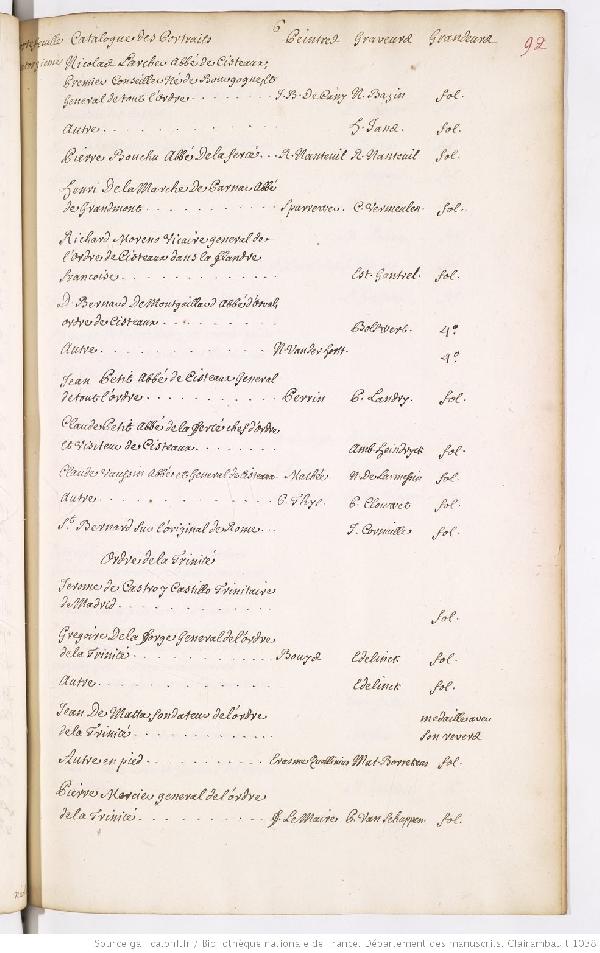 Catalogue des Portraits Peintres Graveurs Grandeurs 92
Nicolas Larcher Abbé de Cisteaux,
Premier Conseiller Né de Bourgogne, et
General de tout l'ordre . . . . . . . . J. B. De Cany N. Bazin fol.
Autre . . . . . . . . . . . . fol.
Pierre Bouchu Abbé De la ferté . . . R. Nanteuil R. Nanteuil fol.
Henri De la Marche De Parnac Abbé
de Grandmont . . . . . . . . . . C. Vermeulen fol.
Richard Morens Vicaire general de
l'ordre de Cisteaux dans la flandre
francoise . . . . . . . . . . . . Est. Gantrel. fol.
D. Bernard De Montgaillard Abbé d'orval,
ordre de Cisteaux . . . . . . . . Bolswert. 4°
Autre . . . . . . . . . . . N. Vander horst. 4°
Jean Petit Abbé de Cisteaux General
de tout l'ordre . . . . . . . . . . Perrin P. Landry. fol.
Claude Petit Abbé de la ferté chef d'ordre
et Visiteur de Cisteaux . . . . . . . fol.
Claude Vaussin Abbé et General de Cisteaux Mathée N. De Larmessin fol.
Autre . . . . . . . . . . . . P. Thys. P. Clouwet fol.
St. Bernard sur l'original de Rome . . . fol.
Ordre de la Trinité
Jerome de Castro y Castillo Trinitaire
de Madrid . . . . . . . . . . . fol.
Gregoire De la forge General de l'ordre
de la Trinité . . . . . . . . . . Bouys Edelinck fol.
Autre . . . . . . . . . . . . Edelinck fol.
Jean De Matta, fondateur de l'ordre medaille avec
de la Trinité . . . . . . . . . . son revers
Autre en pied . . . . . . . . . Erasme Quellinius Mat. Borrekens fol.
Pierre Mercier general de l'ordre
de la Trinité . . . . . . . . . . J. Le Maire P. Van Schuppen fol.
Source gallica.bnf.fr / Bibliothèque nationale de France. Département des manuscrits. Clairambault 1038